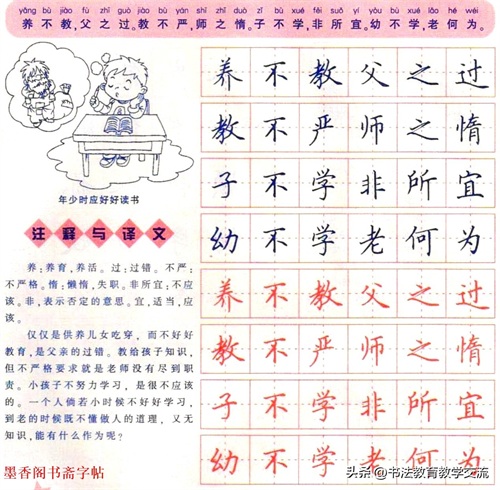 yǎng bù jiào fù zhī guò jiào bù yán shī zhī duò zǐ bù xué fēi suǒ yí yòu bù xué lǎo hé wéi
养不教，父之过。教不严，师之惰。子不学，非所宜。幼不学，老何为。
年少时应好好读书
注释与译文
养：养育，养活。过：过错。不严：
不严格。惰：懒惰，失职。非所宜：不应
该。非：表示否定的意思。宜，适当，应
该。
仅仅是供养儿女吃穿，而不好好
教育，是父亲的过错。教给孩子知识，
但不严格要求就是老师没有尽到职
责。小孩子不努力学习，是很不应该
的。一个人倘若小时候不好好学习，
到老的时候既不懂做人的道理，又无
知识，能有什么作为呢？
墨香阁书斋字帖
养不教父之过
教不严师之惰
子不学非所宜
幼不学老何为
养不教父之过
教不严师之惰
子不学非所宜
幼不学老何为
头条@书法教育教学交流